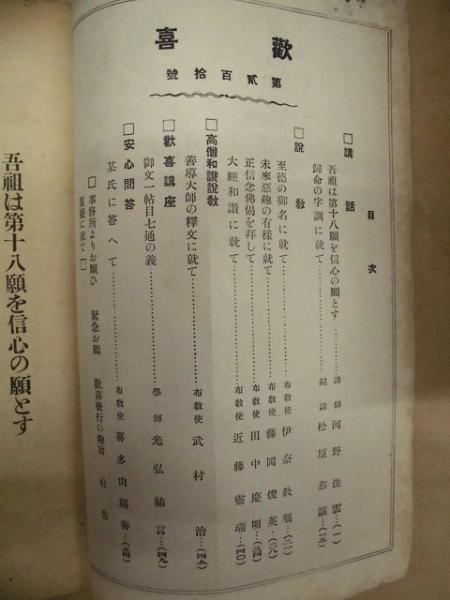 歡喜
第貳百拾號
目次
□講話
吾祖は第十八願を信心の願とす…………講師 河野法雲…(一)
歸命の字訓に就て…………松原恭讓…(一五)
□說敎
至德の御名に就て…………布敎使 伊奈敎順…(二一)
未來惡趣の有樣に就て…………布敎使 藤岡俊英…(二八)
正信念佛偈を拜して…………布敎使 田中慶明…(三四)
大經和讃に就て…………布敎使 近藤憲瑞…(四〇)
□高僧和讃說敎
善導大師の釋文に就て…………布敎使 武村治…(四五)
□歡喜講座
御文一帖目七通の義…………學師 光弘祐言…(四九)
□安心問答
某氏に答へて…………布敎使 喜多山
□事務所よりお願ひ 緊急お願 歡喜發行の趣旨 社告
に就て□
吾祖は第十八願を信心の願とす